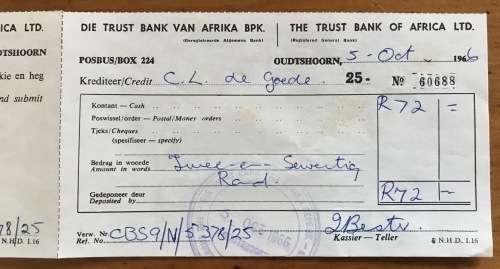 ICA LTD.
DIE TRUST BANK VAN AFRIKA BPK. THE TRUST BANK OF AFRICA LTD.
(Geregistreerde Algemene Bank) (Registered General Bank)
UDTSHOORN
POSBUS/BOX 224 OUDTSHOORN, 5-Oct 1966
kie en heg
Krediteer/Credit C. L. de Goede. 25- No 60688
nd submit
Kontant — Cash R72 =
Poswissel/order — Postal/Money orders
Tjeks/Cheques
(spesifiseer — specify)
Bedrag in woorde
Amount in words
Twee-en-Sewentig
Rand.
Gedeponeer deur
Deposited by R72 —
78/25
N.H.D. 1.16
Verw. Nr.
Ref. No. CBS9/N/5378/25
Kassier — Teller
N.H.D. 1.16